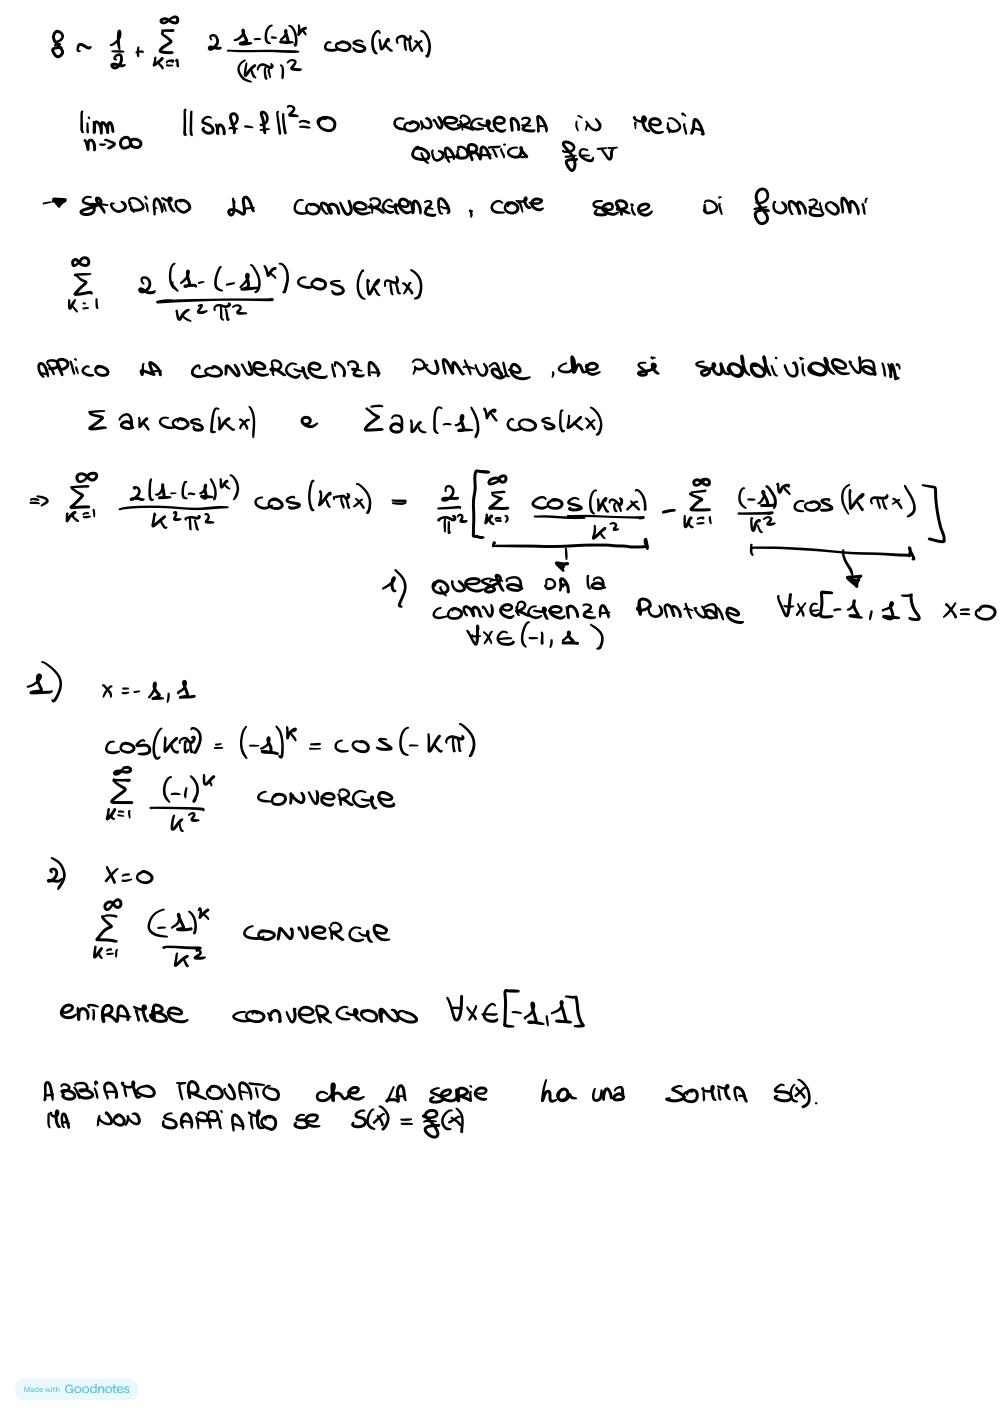 f ~ 1/2 + Σ_{k=1}^{∞} 2 (1-(-1)^k)/(kπ)^2 cos(kπx)
lim_{n->∞} ||Snf - f||^2 = 0 CONVERGENZA IN MEDIA
QUADRATICA f∈V
→ STUDIAMO LA CONVERGENZA, COME SERIE DI fUNZIONI
Σ_{k=1}^{∞} 2(1-(-1)^k)/(k^2π^2) cos(kπx)
APPLICO LA CONVERGENZA PUNTUALE, che si suddivideva in
Σ ak cos(kx) e Σ ak(-1)^k cos(kx)
=> Σ_{k=1}^{∞} 2(1-(-1)^k)/(k^2π^2) cos(kπx) = 2/π^2 [Σ_{k=1}^{∞} cos(kπx)/k^2 - Σ_{k=1}^{∞} (-1)^k/k^2 cos(kπx)]
1) Questa DA la
CONVERGENZA PUNTUALE ∀x∈[-1,1] x=0
∀x∈(-1,1)
1) x=-1,1
cos(kπ) = (-1)^k = cos(-kπ)
Σ_{k=1}^{∞} (-1)^k/k^2 CONVERGE
2) x=0
Σ_{k=1}^{∞} (-1)^k/k^2 CONVERGE
ENTRAMBE CONVERGONO ∀x∈[-1,1]
ABBIAMO TROVATO che LA SERIE ha una SOMMA S(x).
MA NON SAPPIAMO SE S(x) = f(x)
Made with Goodnotes